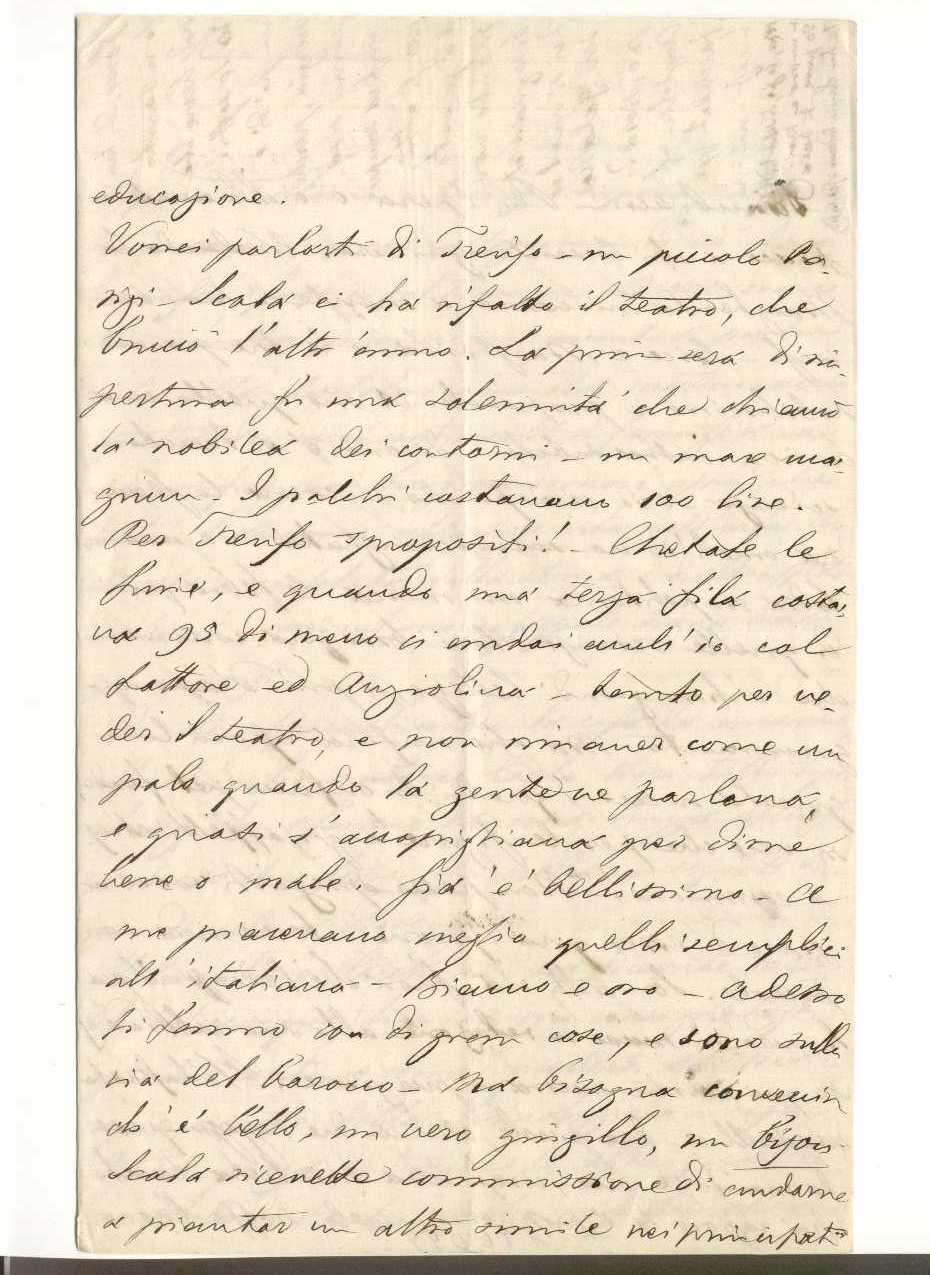 educazione.
Vorrei parlarti di Treviso – un piccolo Pa-
rigi – Scala ci ha rifatto il teatro, che
bruciò l'altr'anno. La prim sera di ria-
pertura fu una solennità che chiamò
la nobilea dei contorni – un mare ma-
gnum – I palchi costavano 100 lire.
Per Treviso spropositi! – Chetate le
furie, e quando una terza fila costa-
va 95 di meno ci andai anch'io col
Fattore ed Anziolina – tanto per ve-
der il teatro, e non rimaner come un
palo quando la gente ne parlava,
e quasi s'accapigliava per dirne
bene o male. Già è bellissimo – A
me piacevano meglio quelli semplici
all'italiana – bianco e oro – Adesso
li fanno con di gran cose, e sono sulla
via del barocco – Ma bisogna convenir
ch'è bello, un vero gingillo, un bijou.
Scala ricevette commissione di andarne
a piantar un altro simile nei principati